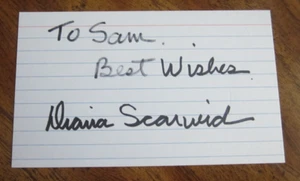 To Sam.
Best Wishes
Diana Scarwid